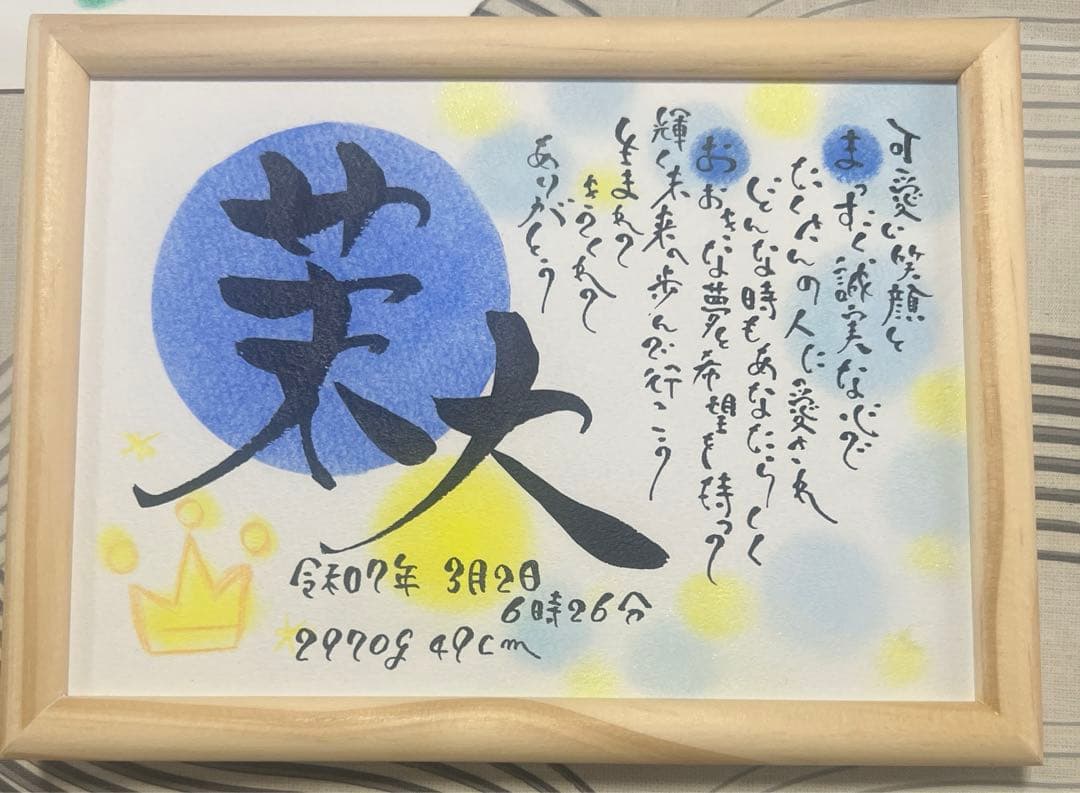 可愛い笑顔と
まっすぐ誠実な心で
たくさんの人に愛され
どんな時もあなたらしく
おおきな夢と希望を持って
輝く未来へ歩んで行こう
生まれて
きてくれて
ありがとう
茉大
令和7年 3月2日
6時26分
2970g 49cm